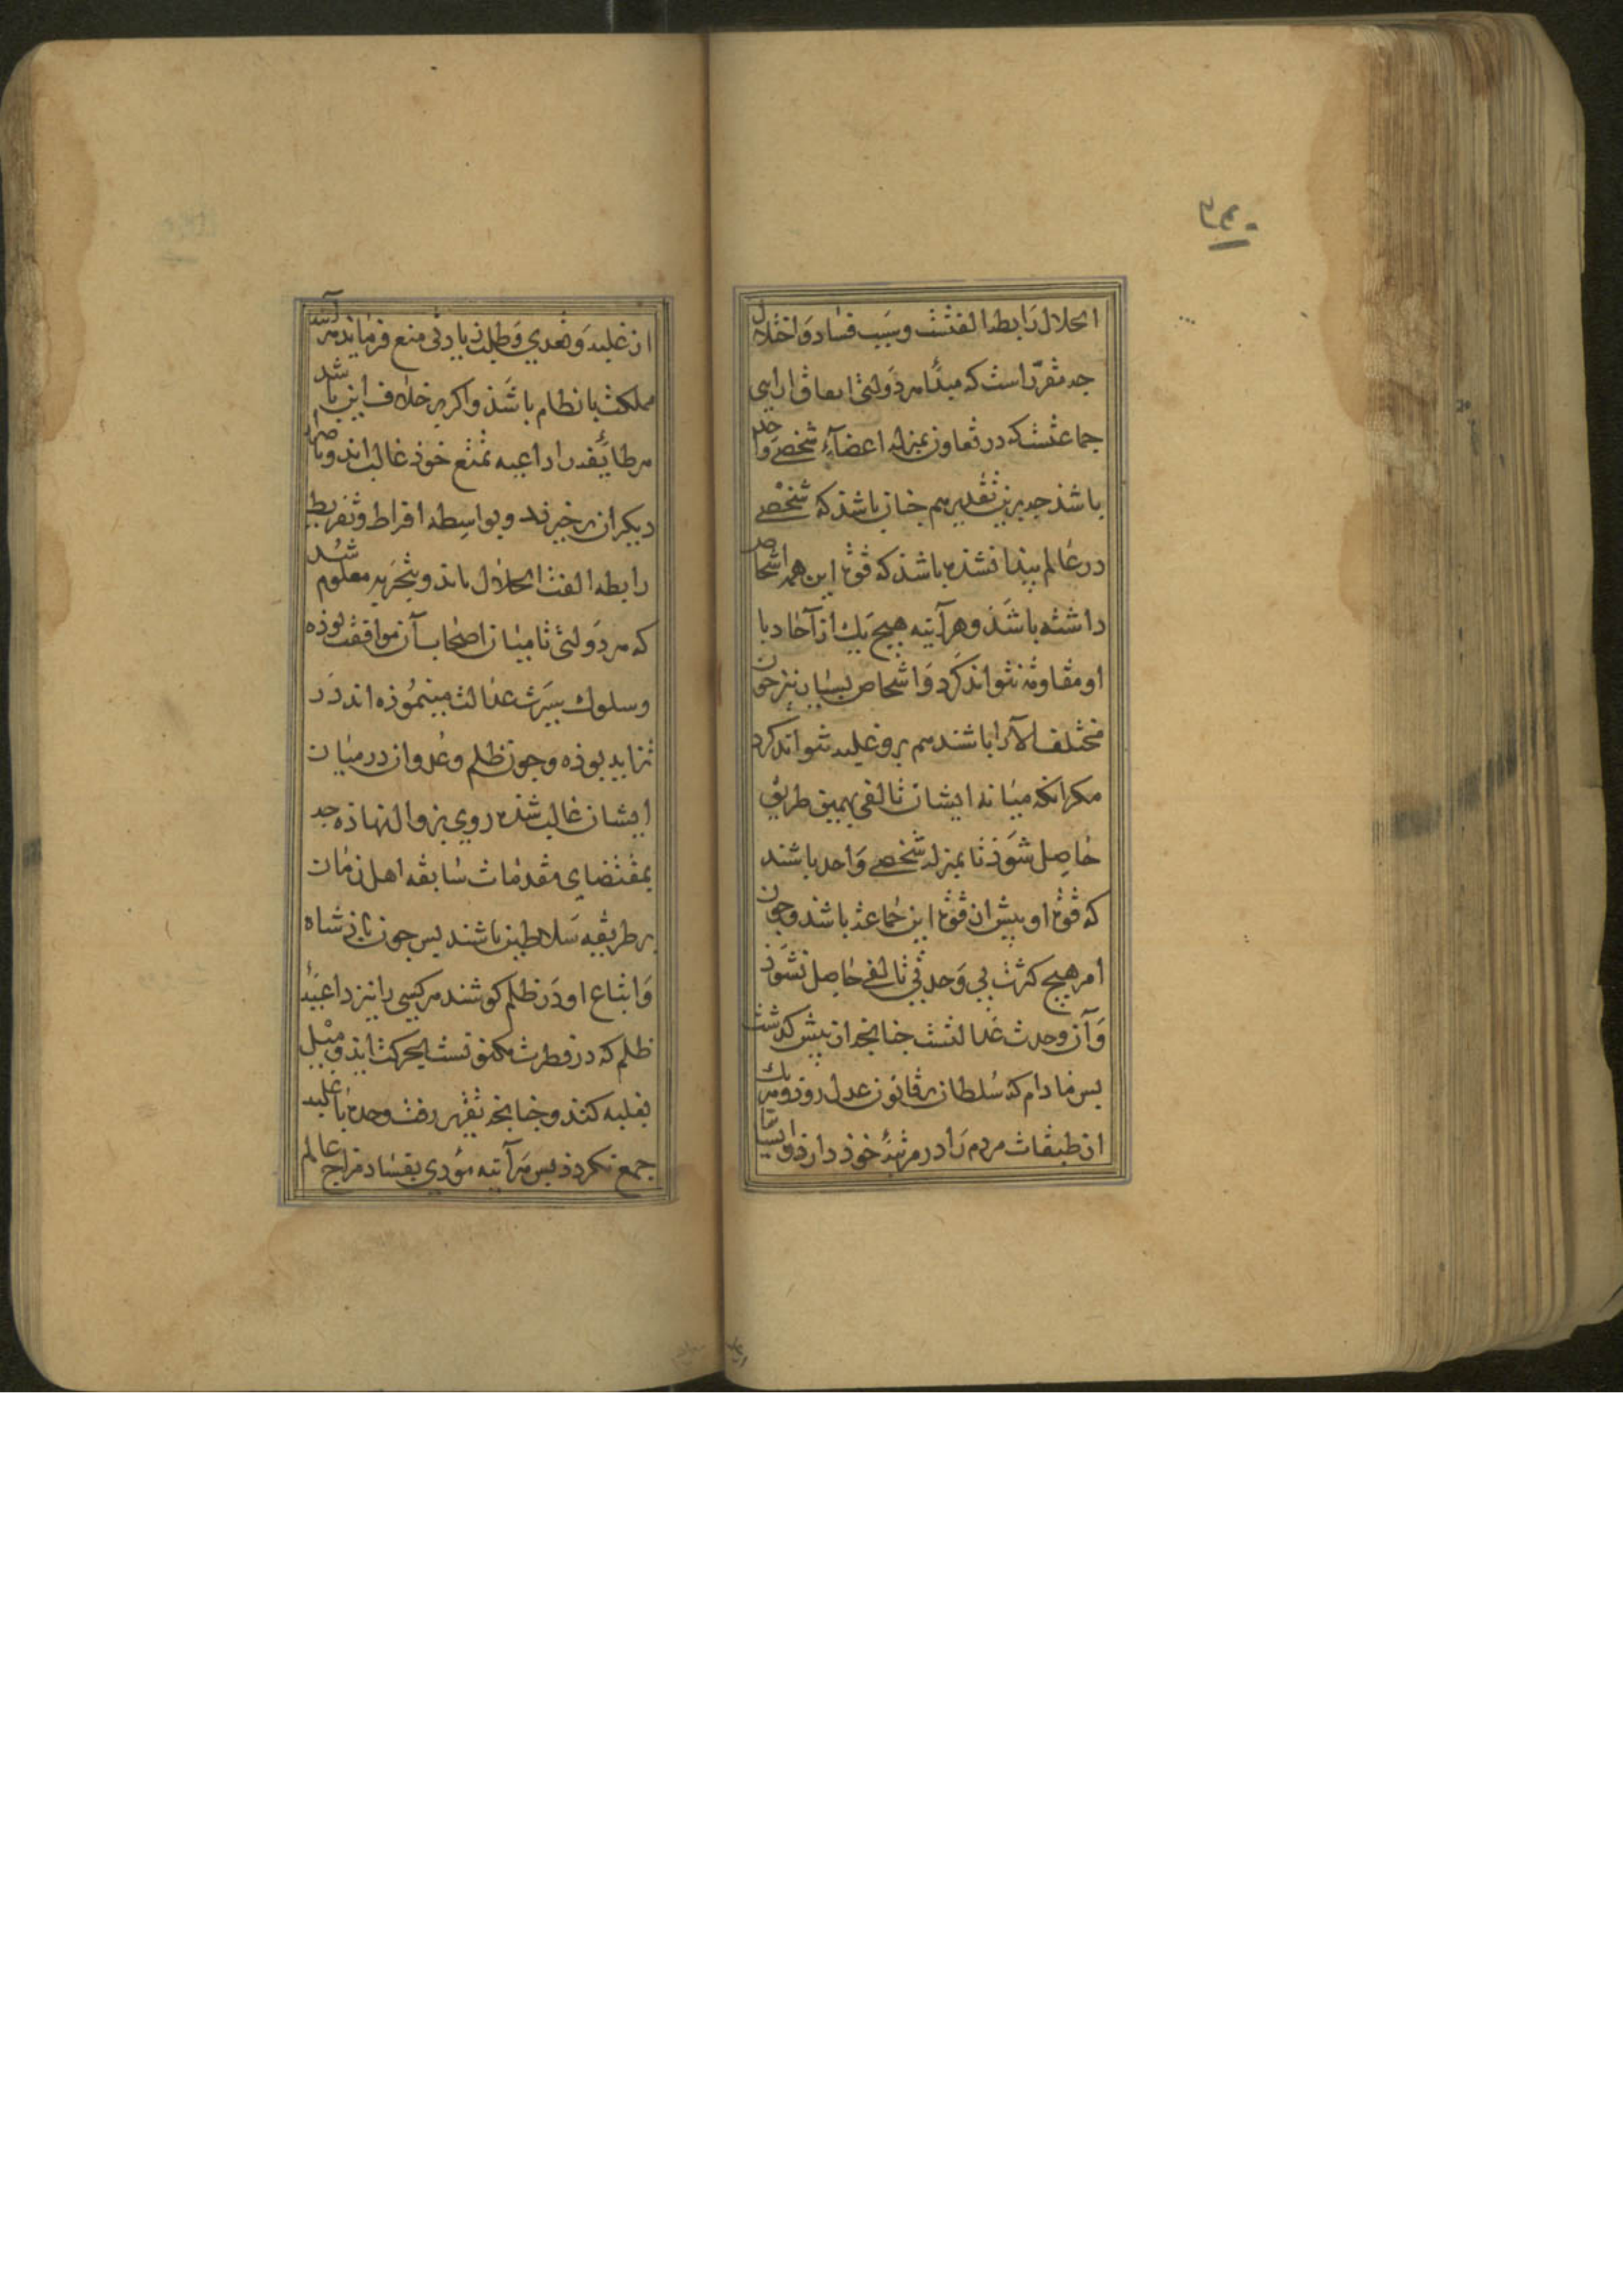 انحلال رابطه الفتست و سبب فساد و اختلال
جه مقرّر است که مبدأ هر دولتی اتفاق ارای
جماعتست که در تعاون بمنزله اعضاء شخصی واحد
باشذ جه برین تقدیر هم جنان باشذ که شخصی
در عالم پیدا شده باشذ که قوة این همه اشخاص
داشته باشذ و هرآینه هیچ یک از آحاد با
او مقاومة نتواند کرد و اشخاص بسیار نیز جون
مختلف الآرا باشند هم برو غلبه نتوانند کرد
مکر انکه میانه ایشان تالفی بهمین طریق
حاصل شوذ تا بمنزله شخصی واحد باشند
که قوة او بیش از قوة این جماعة باشد و جون
امر هیچ کثرت بی وحدتی تالفی حاصل نشوذ
و آن وحدت عدالتست جنانجه از پیش کذشت
پس مادام که سلطان بر قانون عدل روذ و هر یک
از طبقات مردم را در مرتبهٔ خوذ دارذ و ایشانرا
از غلبه و تعدی و طلب زیادتی منع فرماید هرآینه
مملکت بانظام باشذ و اکر بر خلاف این باشد
هر طایٔفه را داعیه تمتع خوذ غالب اند و باضرار
دیکران برخیزند و بواسطه افراط و تفریط
رابطه الفت انحلال یابذ و بتجربه معلوم شد
که هر دولتی تا میان اصحاب آن موافقت بوذه
و سلوک سیرت عدالت مینموذه اند در
تزاید بوذه و جون ظلم و عدوان در میان
ایشان غالب شذه روی بزوال نهاذه جه
بمقتضای مقدمات سابقه اهل زمان
بر طریقه سلاطین باشند پس جون پاذشاه
و اتباع او در ظلم کوشند هر کسی را نیز داعیهٔ
ظلم که در فطرت مکنونست بحرکت ایذ و میل
بغلبه کنند و جنانجه تقریر رفت وحدة با غلبه
جمع نکردذ پس هرآینه مؤدی بفساد مزاج عالم